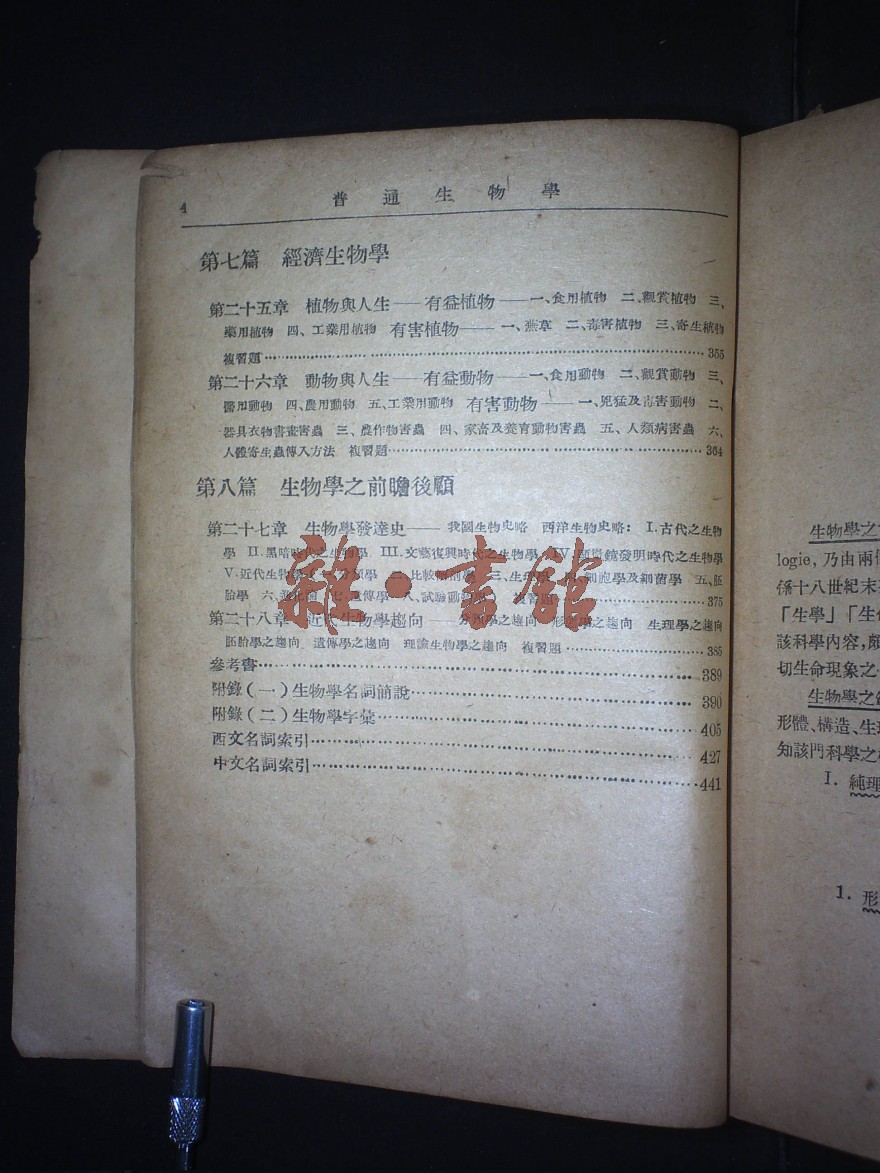 4 普通生物學
第七篇 經濟生物學
第二十五章 植物與人生——有益植物——一、食用植物 二、觀賞植物 三、
藥用植物 四、工業用植物 有害植物——一、燕草 二、毒害植物 三、寄生植物
複習題……355
第二十六章 動物與人生——有益動物——一、食用動物 二、觀賞動物 三、
醫用動物 四、農用動物 五、工業用動物 有害動物——一、兇猛及毒害動物 二、
器具衣物書畫害蟲 三、農作物害蟲 四、家畜及養育動物害蟲 五、人類病害蟲 六、
人體寄生蟲傳入方法 複習題……364
第八篇 生物學之前瞻後顧
第二十七章 生物學發達史——我國生物史略 西洋生物史略：I.古代之生物
學 II.黑暗時代之生物學 III.文藝復興時代之生物學 IV.顯微鏡發明時代之生物學
V.近代生物學 一、分類學 二、比較解剖學 三、生理學 四、細胞學及細菌學 五、胚
胎學 六、進化論 七、遺傳學 八、試驗動物學 複習題……375
第二十八章 近代生物學趨向——分類學之趨向 形態學之趨向 生理學之趨向
胚胎學之趨向 遺傳學之趨向 理論生物學之趨向 複習題……385
參考書……389
附錄(一)生物學名詞簡說……390
附錄(二)生物學字彙……405
西文名詞索引……427
中文名詞索引……441
雜·書館
生物學之
logie, 乃由兩
十八世紀末
「生學」「生
該科學內容,
切生命現象之
生物學之
形體、構造、生
知該門科學之
I. 純理
1. 形